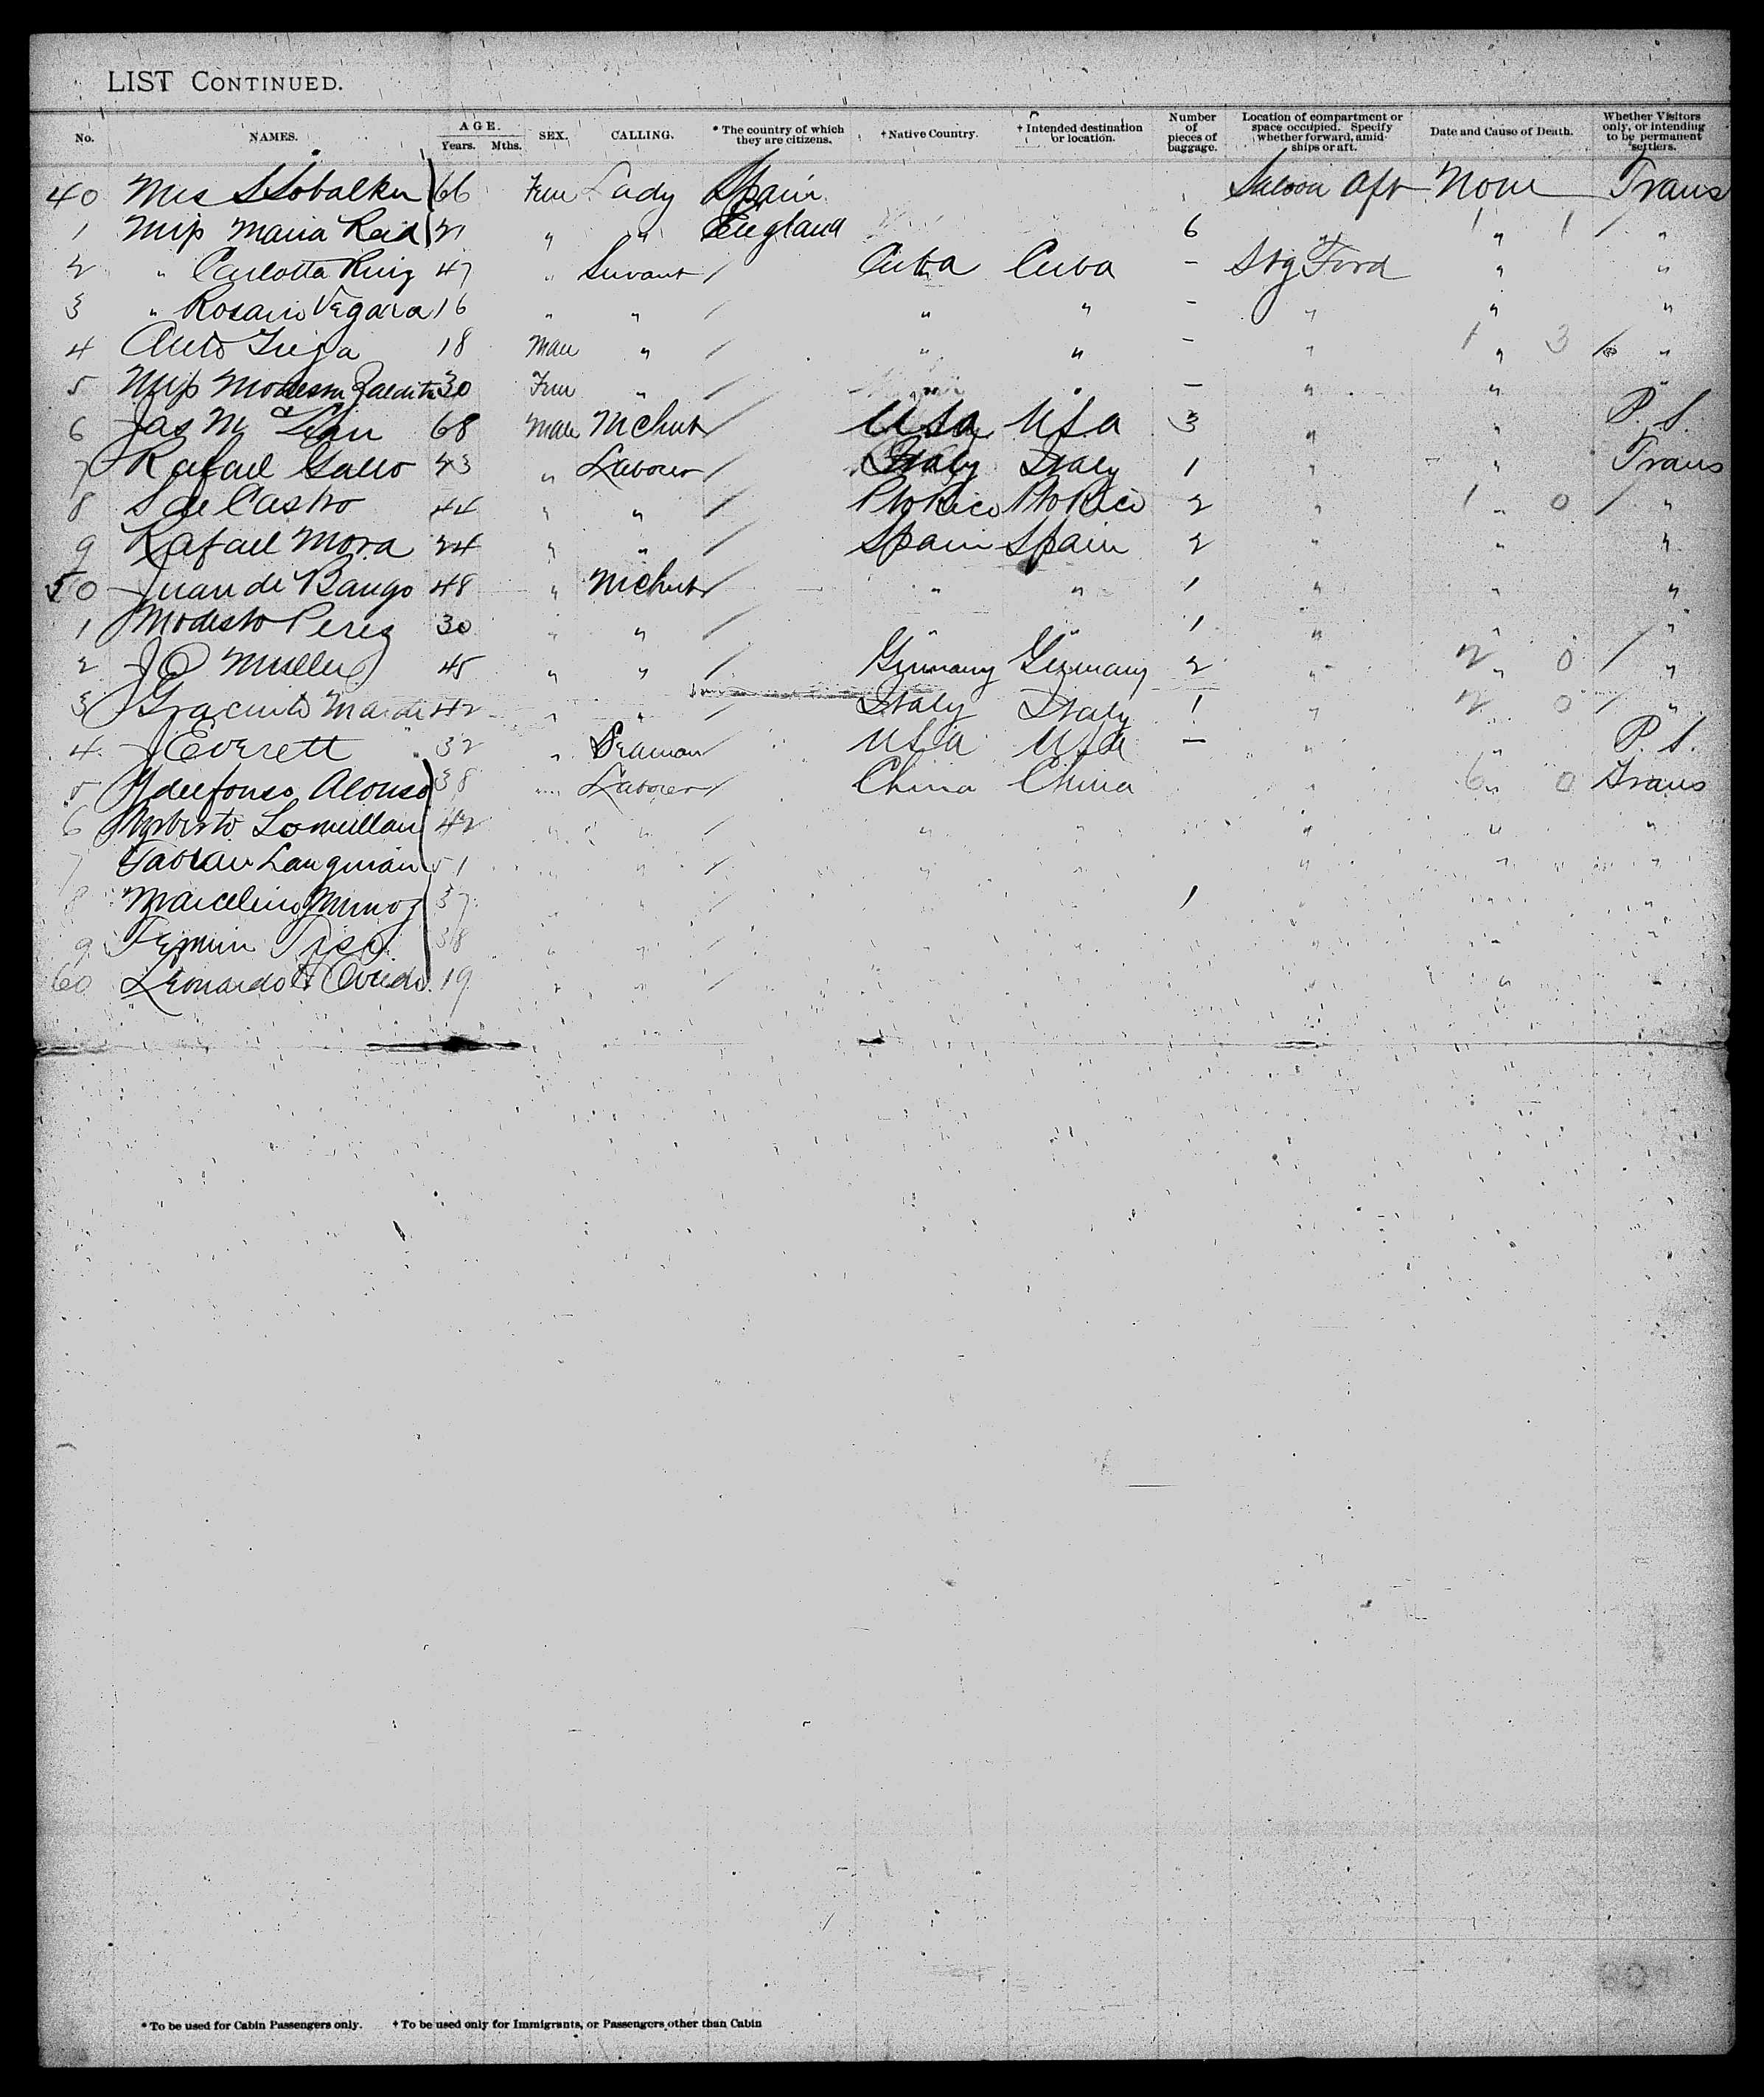 LIST CONTINUED.
No. NAMES. AGE. Years. Mths. SEX. CALLING. * The country of which they are citizens. † Native Country. † Intended destination or location. Number of pieces of baggage. Location of compartment or space occupied. Specify whether forward, amidships or aft. Date and Cause of Death. Whether Visitors only, or intending to be permanent settlers.
40 Mrs 66 Fem Lady Spain Saloon Aft None Trans
1 Miss Maria Reid 21 " " England 6 " " "
2 " Carlotta Ruiz 47 " Servant / Cuba Cuba - Stg Ford " "
3 " Rosario Vegara 16 " " / " " - " " "
4 18 Male " / " " - " 1 " 3 / "
5 Miss Modesta 30 Fem " / " " - " " "
6 Jas M 68 Male Mchnt / USA USA 3 " " P. S.
7 Rafael Gallo 43 " Laborer / Italy Italy 1 " " Trans
8 S de Castro 44 " " / Pto Rico Pto Rico 2 " 1 " 0 / "
9 Rafael Mora 24 " " / Spain Spain 2 " " "
50 Juan de Bango 48 " Mchnt / " " 1 " " "
1 Modesto Perez 30 " " / " " 1 " " "
2 Muller 45 " " / Germany Germany 2 " 2 " 0 / "
3 42 " " / Italy Italy 1 " 2 " 0 / "
4 J Everett 32 " Seaman / USA USA - " " P. S.
5 Ildefonso Alonso 38 " Laborer / China China " 6 " 0 Trans
6 42 " " / " " " " "
7 Fabian 51 " " / " " " " "
8 Marcelino Munoz 37 " " / " " 1 " " "
9 38 " " / " " " " "
60 Leonardo 19 " " / " " " " "
* To be used for Cabin Passengers only. † To be used only for Immigrants, or Passengers other than Cabin